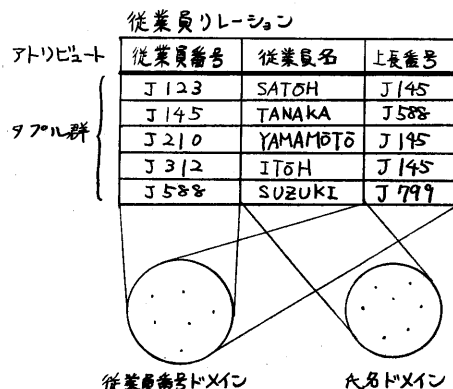 従業員リレーション
アトリビュート 従業員番号 従業員名 上長番号
タプル群
J123 SATOH J145
J145 TANAKA J588
J210 YAMAMOTO J145
J312 ITOH J145
J588 SUZUKI J799
従業員番号ドメイン 氏名ドメイン